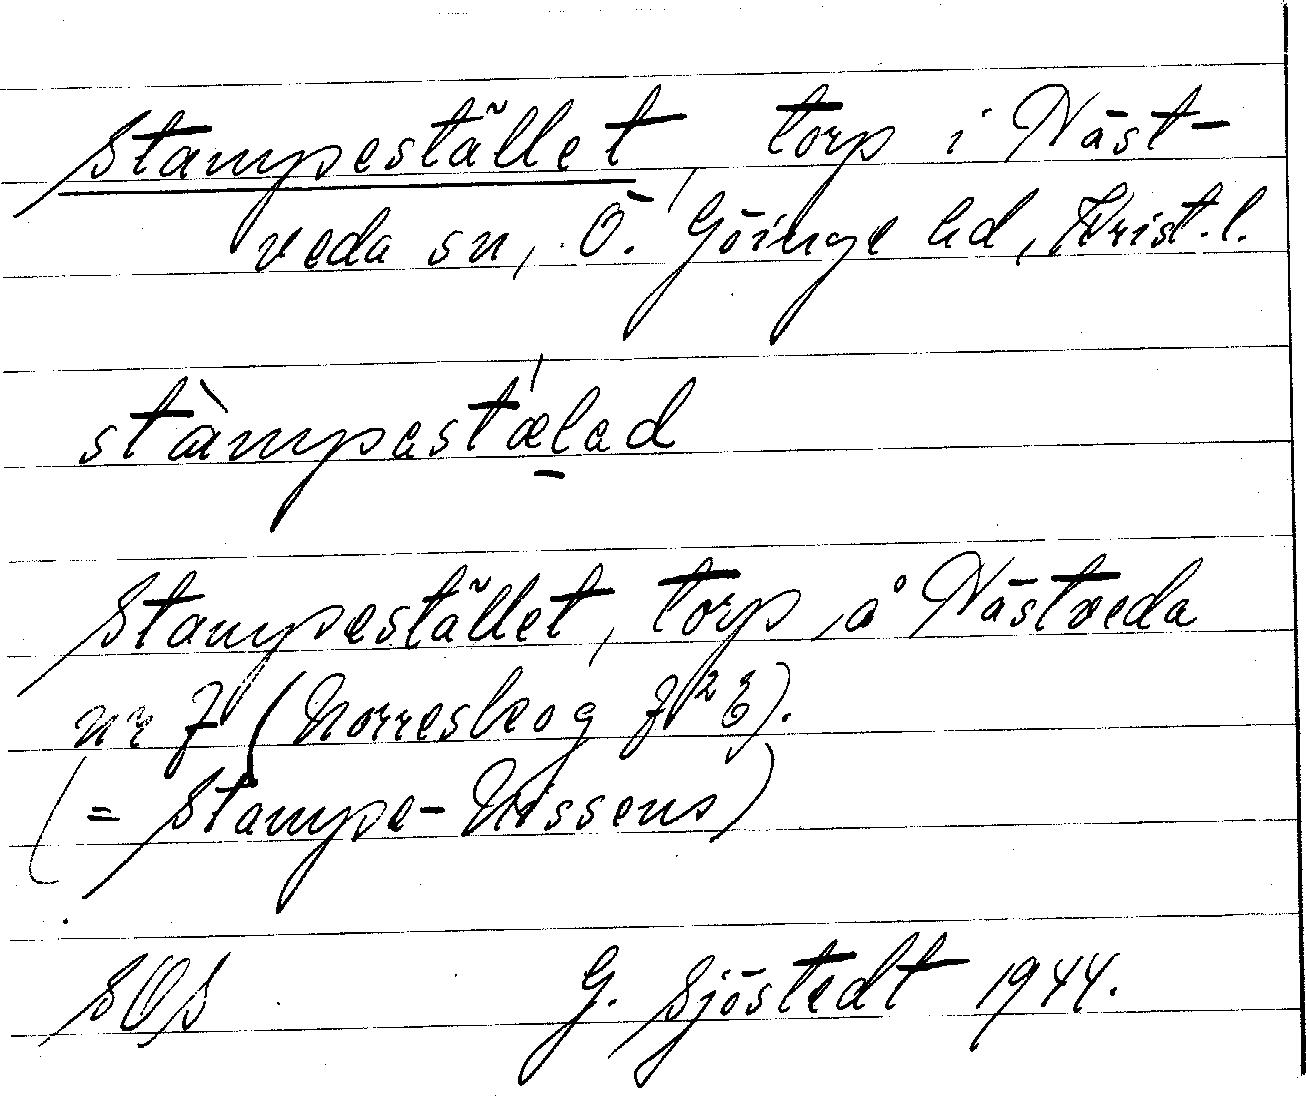 Stampestället, torp i Näst-
veda sn, Ö. Göinge hd, Krist. l.
stàmpestǽled
Stampestället, torp å Nästveda
nr 7 (Norreskog 7²).
(= Stampe-Nissens)
SOS G. Sjöstedt 1944.